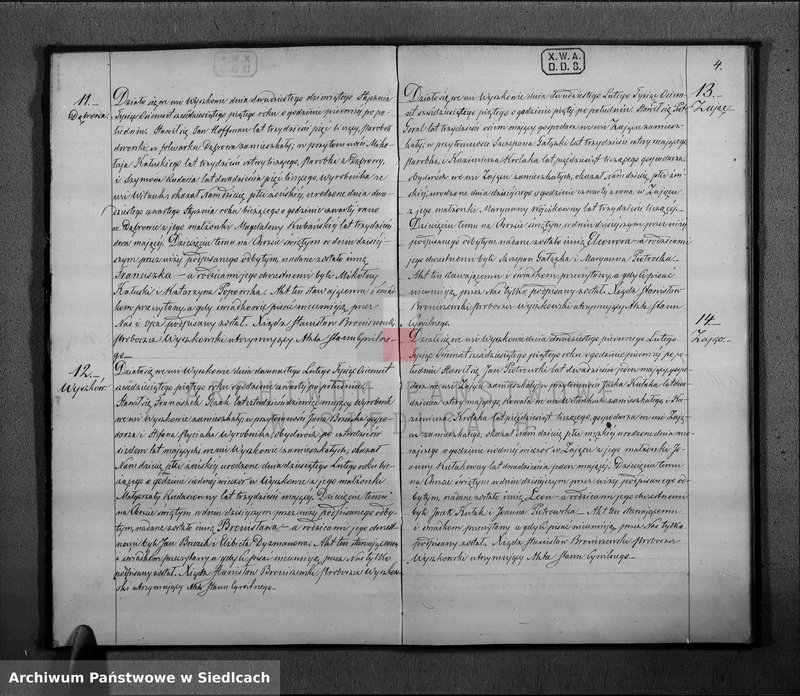 X.W.A.
D.D.S.
4.
11.
Dąbrowa.
Działo się we wsi Wyszkowie dnia dwudziestego dziewiątego Stycznia
Tysiąc Ośmset sześćdziesiątego piątego roku o godzinie pierwszej po po-
łudniu. Stawił się Jan Hoffman lat trzydzieści pięć liczący, Parobek
dworski, w folwarku Dąbrowa zamieszkały, w przytomności Miko-
łaja Kałuskiego lat trzydzieści cztery liczącego Parobka z Dąbrowy,
i Szymona lat dwadzieścia pięć liczącego, Wyrobnika ze
wsi okazał Nam dziecię płci żeńskiej, urodzone dnia dwu-
dziestego czwartego Stycznia roku bieżącego o godzinie czwartej rano
w Dąbrowie z jego małżonki Magdaleny lat trzydzieści
dwa mającej. Dziecięciu temu na Chrzcie świętym w dniu dzisiej-
szym przez niżej podpisanego odbytym, nadane zostało imię
Franciszka — a rodzicami jego chrzestnemi byli Mikołaj
Kałuski i Katarzyna Popowska. Akt ten stawającemu i świad-
kom przeczytany, a gdy świadkowie pisać nieumieją, przez
Nas i Ojca podpisany został. Xiądz Stanisław Broniszewski
Proboszcz Wyszkowski utrzymujący Akta Stanu Cywilne-
go.
12.
Wyszków.
Działo się we wsi Wyszkowie dnia dwudziestego Lutego Tysiąc Ośmset
sześćdziesiątego piątego roku o godzinie czwartej po południu.
Stawił się Franciszek lat czterdzieści dziewięć mający, Wyrobnik
we wsi Wyszkowie zamieszkały, w przytomności Jana gospo-
darza i Stefana Wyrobnika, obydwóch po czterdzieści
siedem lat mających we wsi Wyszkowie zamieszkałych, okazał
Nam dziecię płci żeńskiej urodzone dnia dziesiątego Lutego roku bie-
żącego o godzinie siódmej wieczór w Wyszkowie z jego małżonki
Małgorzaty lat trzydzieści mającej. Dziecięciu temu
na Chrzcie świętym w dniu dzisiejszym przez niżej podpisanego odby-
tym, nadane zostało imię Bronisława — a rodzicami jego chrzest-
nemi byli Jan i Elżbieta. Akt ten stawającemu
i świadkom przeczytany a gdy ci pisać nieumieją, przez Nas tylko
podpisany został. Xiądz Stanisław Broniszewski Proboszcz Wyszkow-
ski utrzymujący Akta Stanu Cywilnego.
13.
Zając.
Działo się we wsi Wyszkowie dnia dwudziestego Lutego Tysiąc Ośm-
set sześćdziesiątego piątego o godzinie piątej po południu. Stawił się Piotr
Goral lat trzydzieści ośm mający gospodarz we wsi Zającu zamiesz-
kały, w przytomności Szczepana Gałązki lat trzydzieści cztery mającego
Parobka, i Kazimierza Krolaka lat pięćdziesiąt liczącego gospodarza,
obydwóch we wsi Zającu zamieszkałych, okazał Nam dziecię płci żeń-
skiej, urodzone dnia dzisiejszego o godzinie czwartej z rana w Zającu
z jego małżonki Maryanny Wójcikowny lat trzydzieści liczącej.
Dziecięciu temu na Chrzcie świętym w dniu dzisiejszym przez niżej
podpisanego odbytym, nadane zostało imię Eleonora — a rodzicami
jego chrzestnemi byli Szczepan Gałązka i Maryanna Piotrowska.
Akt ten stawającemu i świadkom przeczytany, a gdy ci pisać
nieumieją, przez Nas tylko podpisany został. Xiądz Stanisław
Broniszewski Proboszcz Wyszkowski utrzymujący Akta Stanu
Cywilnego.
14.
Zając.
Działo się we wsi Wyszkowie dnia dwudziestego pierwszego Lutego
Tysiąc Ośmset sześćdziesiątego piątego roku o godzinie pierwszej po po-
łudniu Stawił się Jan Piotrowski lat dwadzieścia jeden mający gospo-
darz we wsi Zającu zamieszkały, w przytomności Jacka Kutaka lat dwa-
dzieścia cztery mającego, zamieszkałego, i Ka-
zimierza Krolaka lat pięćdziesiąt liczącego, gospodarza we wsi Zają-
cu zamieszkałego, okazał nam dziecię płci męzkiej urodzone dnia wczo-
rajszego o godzinie siódmej wieczór w Zającu z jego małżonki Jo-
anny Kutakowny lat dwadzieścia jeden mającej. Dziecięciu temu
na Chrzcie świętym w dniu dzisiejszym przez niżej podpisanego od-
bytym, nadane zostało imię Leon — a rodzicami jego chrzestnemi
byli Jacek Kutak i Joanna Piotrowska. Akt ten stawającemu
i świadkom przeczytany a gdy ci pisać nieumieją przez Nas tylko
podpisany został. Xiądz Stanisław Broniszewski Proboszcz
Wyszkowski utrzymujący Akta Stanu Cywilnego.
ARCHIWUM PAŃSTWOWE
W SIEDLCACH
Archiwum Państwowe w Siedlcach